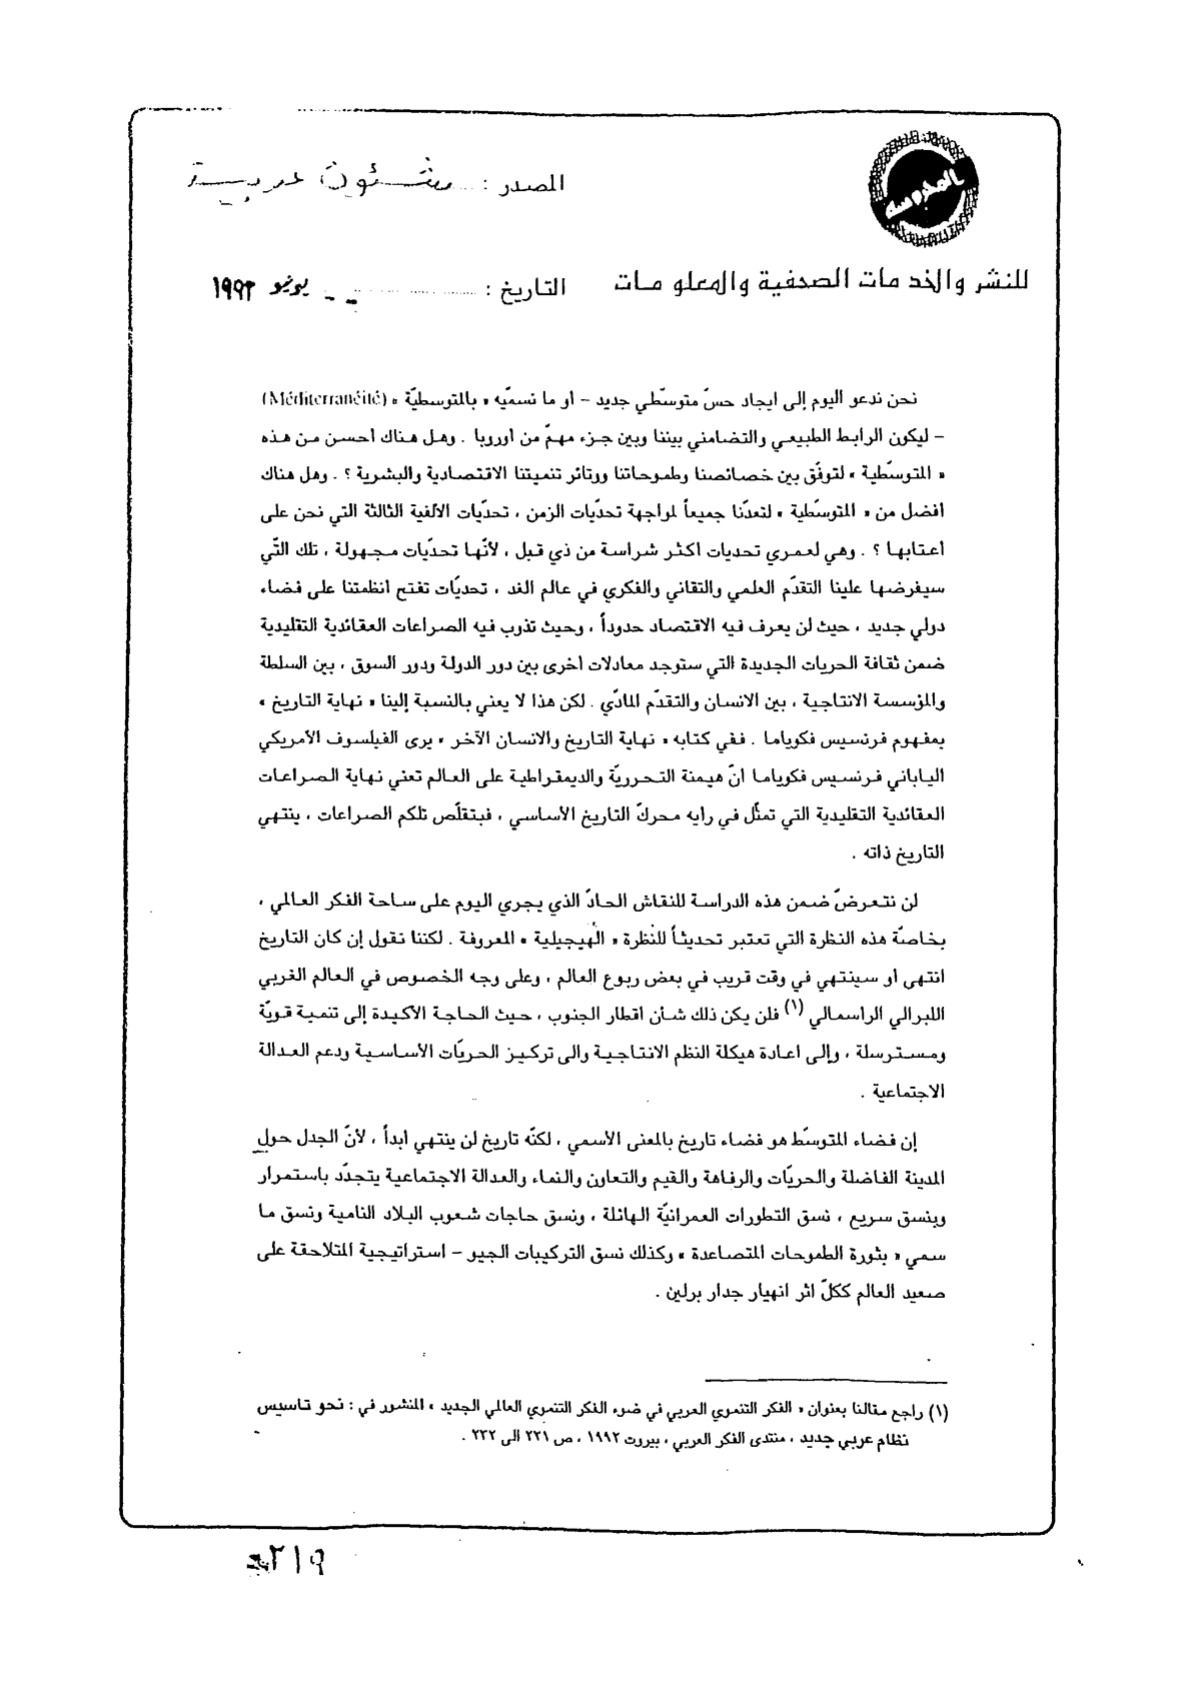 المحروسة
المصدر : شئون عربية
للنشر والخدمات الصحفية والمعلومات
التاريخ : يونيو ١٩٩٣
نحن ندعو اليوم إلى ايجاد حسّ متوسّطي جديد – أو ما نسمّيه « بالمتوسطيّة » (Méditerranéité)
– ليكون الرابط الطبيعي والتضامني بيننا وبين جزء مهمّ من أوروبا . وهل هناك أحسن من هذه
« المتوسّطية » لتوفّق بين خصائصنا وطموحاتنا ووتائر تنميتنا الاقتصادية والبشرية ؟ . وهل هناك
أفضل من « المتوسّطية » لتعدّنا جميعاً لمواجهة تحديّات الزمن ، تحديّات الألفية الثالثة التي نحن على
أعتابها ؟ . وهي لعمري تحديات أكثر شراسة من ذي قبل ، لأنّها تحديّات مجهولة ، تلك التّي
سيفرضها علينا التقدّم العلمي والتقاني والفكري في عالم الغد ، تحديّات تفتح أنظمتنا على فضاء
دولي جديد ، حيث لن يعرف فيه الاقتصاد حدوداً ، وحيث تذوب فيه الصراعات العقائدية التقليدية
ضمن ثقافة الحريات الجديدة التي ستوجد معادلات أخرى بين دور الدولة ودور السوق ، بين السلطة
والمؤسسة الانتاجية ، بين الانسان والتقدّم المادّي . لكن هذا لا يعني بالنسبة إلينا « نهاية التاريخ »
بمفهوم فرنسيس فكوياما . ففي كتابه « نهاية التاريخ والانسان الآخر » يرى الفيلسوف الأمريكي
الياباني فرنسيس فكوياما أنّ هيمنة التحرريّة والديمقراطية على العالم تعني نهاية الصراعات
العقائدية التقليدية التي تمثّل في رأيه محركّ التاريخ الأساسي ، فبتقلّص تلكم الصراعات ، ينتهي
التاريخ ذاته .
لن نتعرضّ ضمن هذه الدراسة للنقاش الحادّ الذي يجري اليوم على ساحة الفكر العالمي ،
بخاصّة هذه النظرة التي تعتبر تحديثاً للنظرة « الهيجيلية » المعروفة . لكننا نقول إن كان التاريخ
انتهى أو سينتهي في وقت قريب في بعض ربوع العالم ، وعلى وجه الخصوص في العالم الغربي
اللبرالي الرأسمالي (١) فلن يكن ذلك شأن أقطار الجنوب ، حيث الحاجة الأكيدة إلى تنمية قويّة
ومسترسلة ، وإلى اعادة هيكلة النظم الانتاجية والى تركيز الحريّات الأساسية ودعم العدالة
الاجتماعية .
إن فضاء المتوسّط هو فضاء تاريخ بالمعنى الأسمي ، لكنّه تاريخ لن ينتهي أبداً ، لأنّ الجدل حول
المدينة الفاضلة والحريّات والرفاهة والقيم والتعاون والنماء والعدالة الاجتماعية يتجدّد باستمرار
وبنسق سريع ، نسق التطورات العمرانيّة الهائلة ، ونسق حاجات شعوب البلاد النامية ونسق ما
سمي « بثورة الطموحات المتصاعدة » وكذلك نسق التركيبات الجيو – استراتيجية المتلاحقة على
صعيد العالم ككلّ اثر انهيار جدار برلين .
(١) راجع مقالنا بعنوان « الفكر التنموي العربي في ضوء الفكر التنموي العالمي الجديد » المنشور في : نحو تأسيس
نظام عربي جديد ، منتدى الفكر العربي ، بيروت ١٩٩٢ ، ص ٢٢١ الى ٢٣٢ .
٢١٩